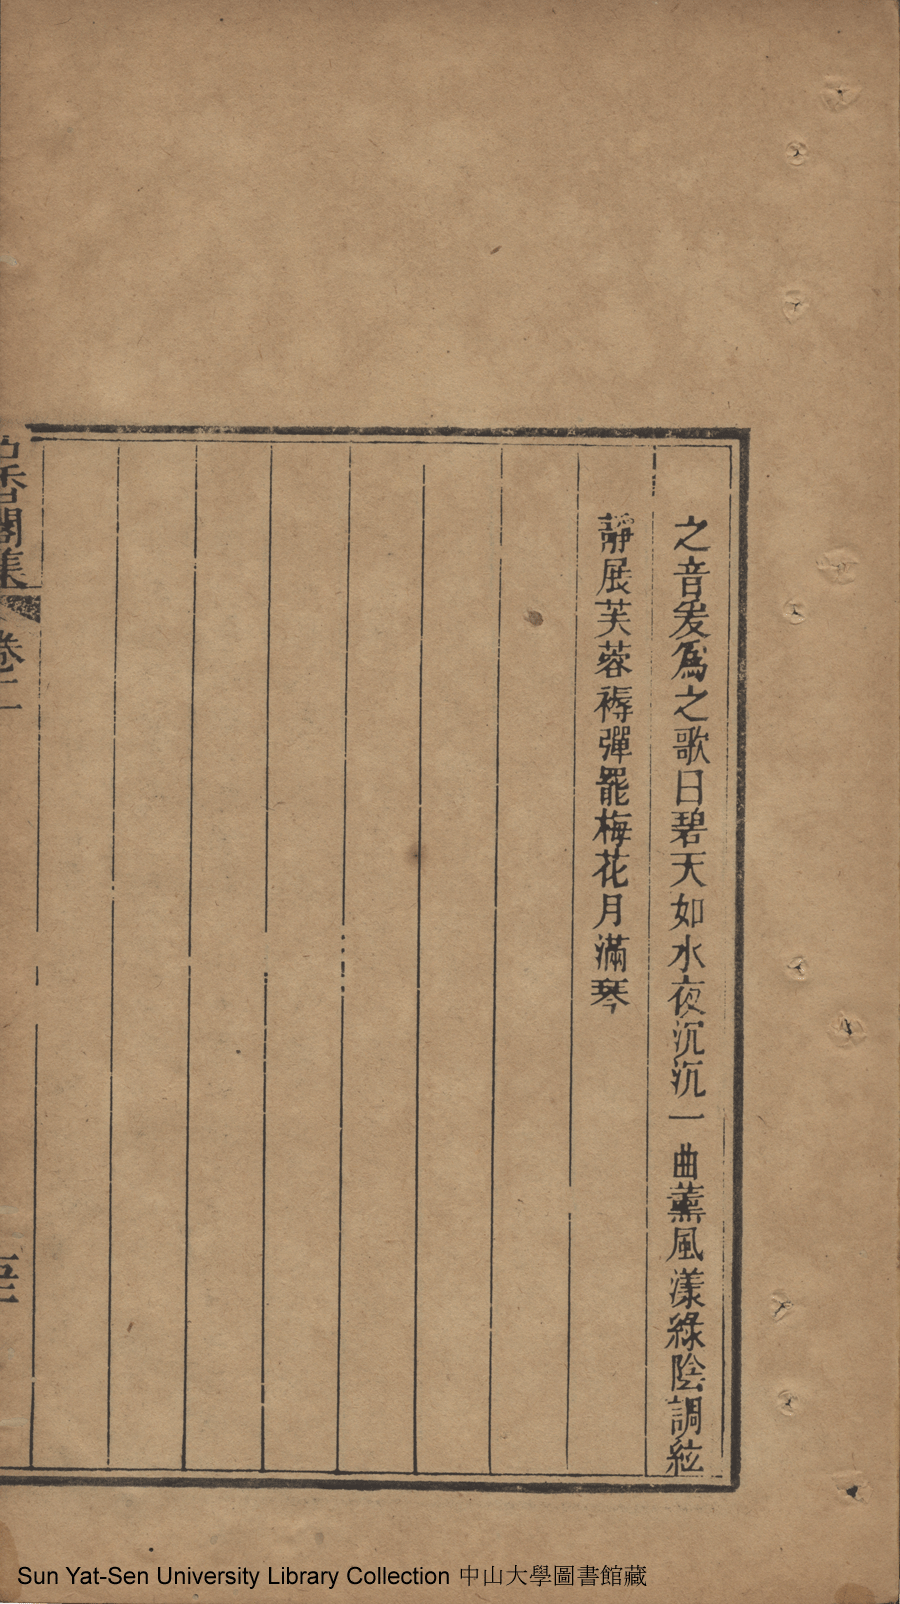 之音爰爲之歌曰碧天如水夜沉沉一曲薰風漾綠陰調絃
靜展芙蓉褥彈罷梅花月滿琴
香閣集
卷二
Sun Yat-Sen University Library Collection 中山大學圖書館藏